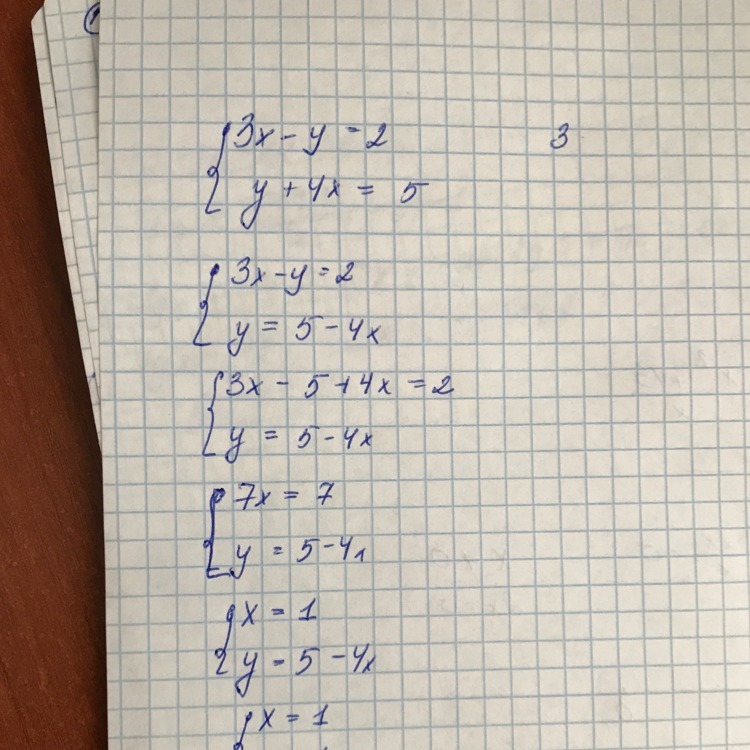 3x - y = 2 3
y + 4x = 5
3x - y = 2
y = 5 - 4x
3x - 5 + 4x = 2
y = 5 - 4x
7x = 7
y = 5 - 4x
x = 1
y = 5 - 4x
x = 1